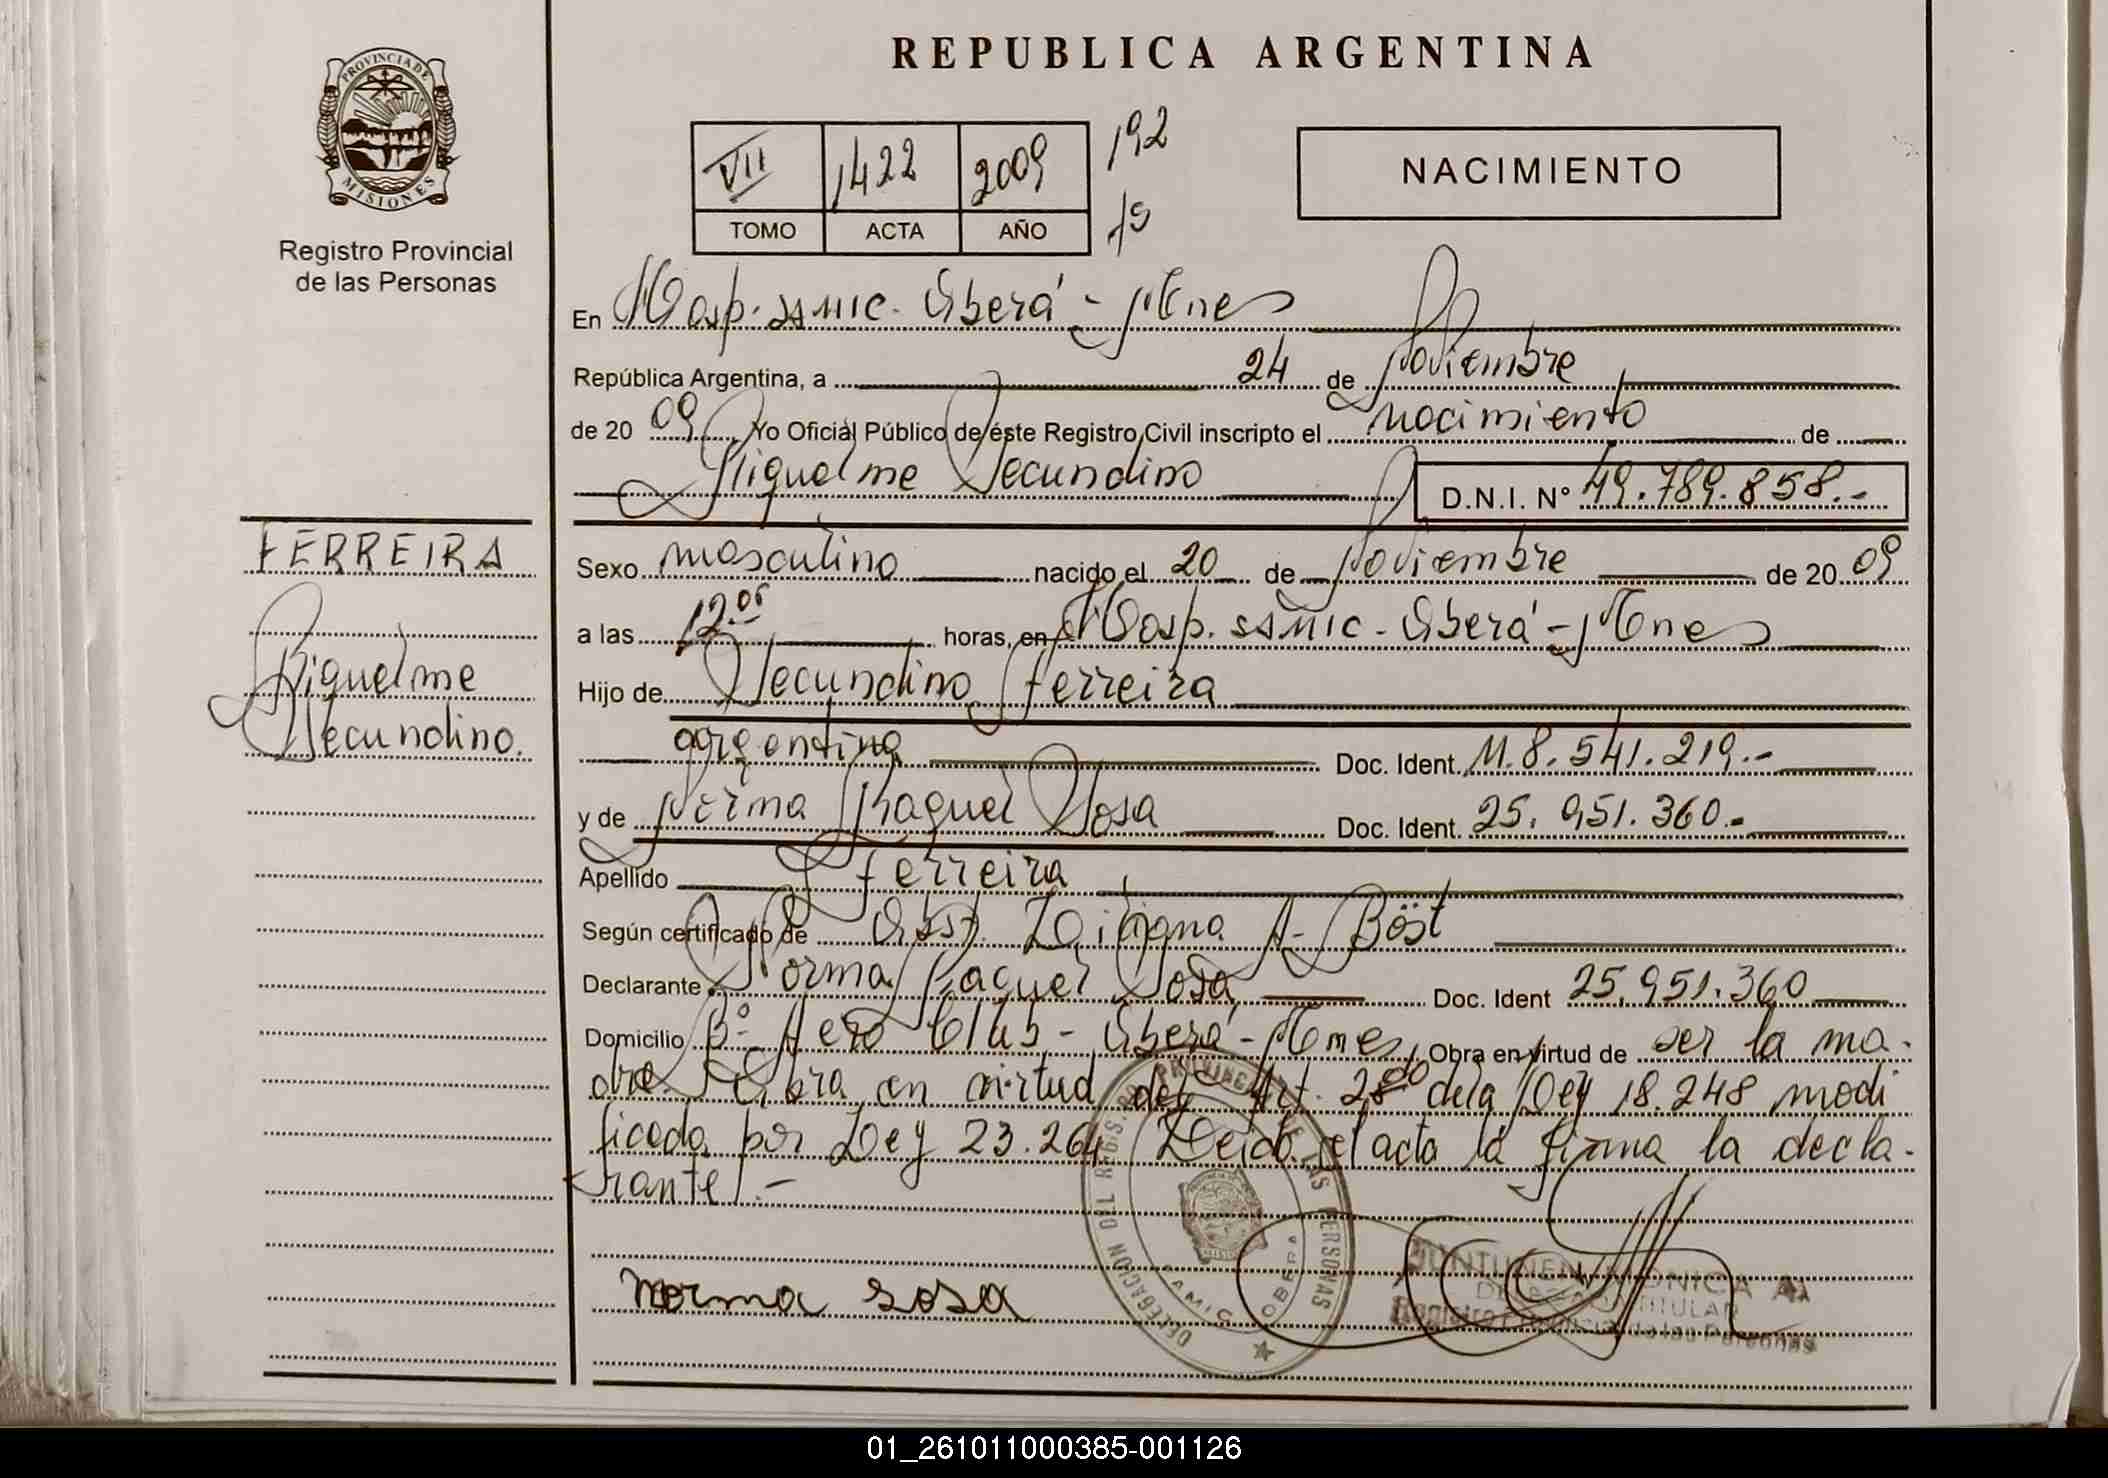 REPUBLICA ARGENTINA
PROVINCIA DE MISIONES
Registro Provincial
de las Personas
VII 1422 2009 192
TOMO ACTA AÑO fs
NACIMIENTO
En Hosp. SSMIC. Oberá - Mnes
República Argentina, a 24 de Noviembre
de 20 09 Yo Oficial Público de éste Registro Civil inscripto el nacimiento de
Riquelme Secundino D.N.I. N° 49.789.858.-
FERREIRA
Riquelme
Secundino.
Sexo masculino nacido el 20 de Noviembre de 20 09
a las 12.05 horas, en Hosp. SSMIC - Oberá - Mnes
Hijo de Secundino Ferreira
argentina Doc. Ident. M.8.541.219.-
y de Norma Raquel Sosa Doc. Ident. 25.951.360.-
Apellido Ferreira
Según certificado de Obst. Liliana A. Böst
Declarante Norma Raquel Sosa Doc. Ident 25.951.360
Domicilio B° Aero Club - Oberá - Mnes Obra en virtud de ser la ma-
dre. Obra en virtud del Art. 2do de la Ley 18.248 modi
ficada por Ley 23.264 Leída el acta la firma la decla-
rante.-
norma sosa
DELEGACION DEL REGISTRO PROVINCIAL DE LAS PERSONAS
SAMIC OBERA
MONICA A.
TITULAR
Registro Provincial de las Personas
01_261011000385-001126